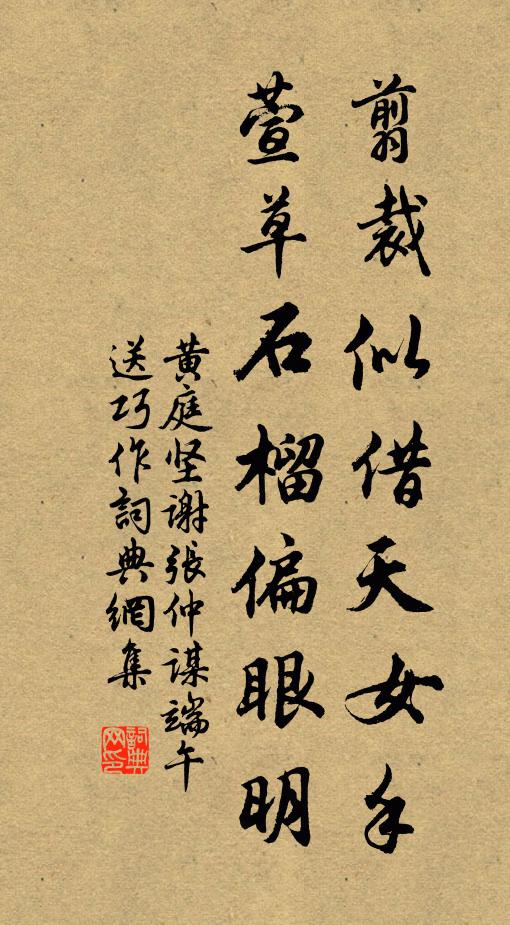 翦裁似借天女手
萱草石榴偏眼明
黄庭坚谢張仲謀端午
送巧作詞典網集
詞典网印